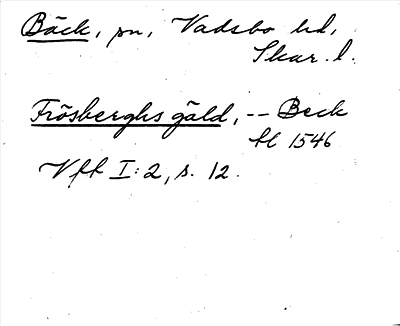 Bäck, sn, Vadsbo hd,
Skar. l.
Frösberghs gäld, -- Beck
hl 1546
Vff I:2, s. 12.